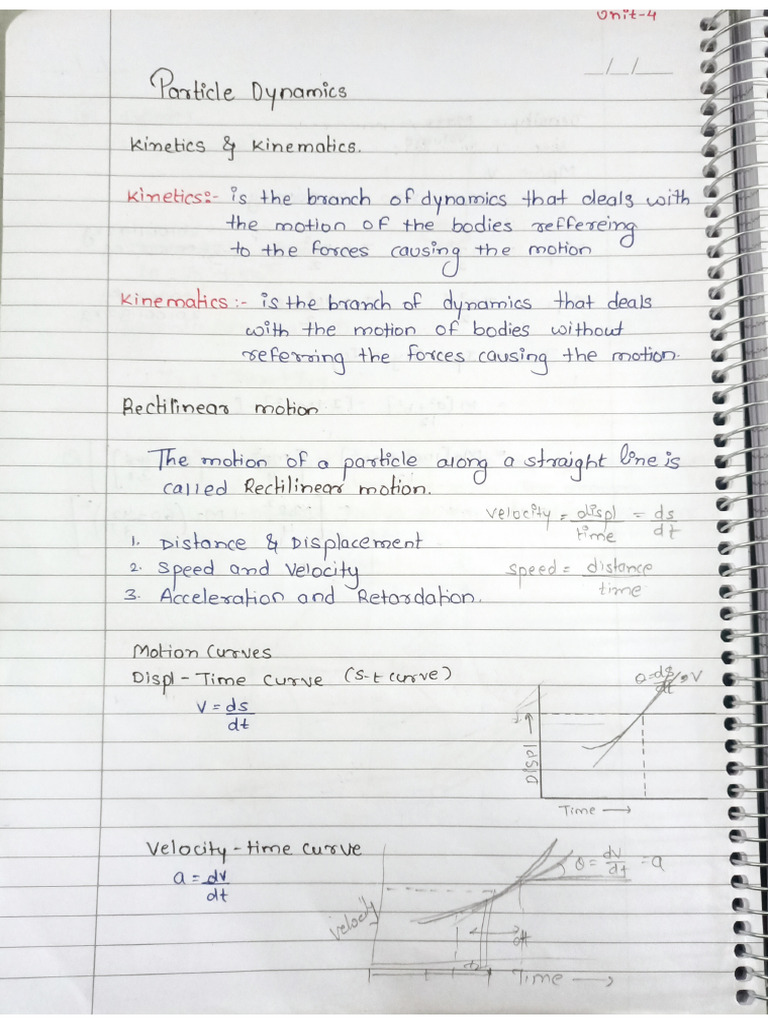 Unit-4
__/__/__
Particle Dynamics
Kinetics & Kinematics.
Kinetics:- is the branch of dynamics that deals with
the motion of the bodies reffereing
to the forces causing the motion
Kinematics:- is the branch of dynamics that deals
with the motion of bodies without
referring the forces causing the motion.
Rectilinear motion
The motion of a particle along a straight line is
called Rectilinear motion.
velocity = displ/time = ds/dt
1. Distance & Displacement
2. Speed and Velocity
speed = distance/time
3. Acceleration and Retardation.
Motion Curves
Displ-Time curve (s-t curve)
V = ds/dt
θ = ds/dt = V
Displ
Time →
Velocity-time curve
a = dv/dt
θ = dv/dt = a
velocity
dt
t
Time →